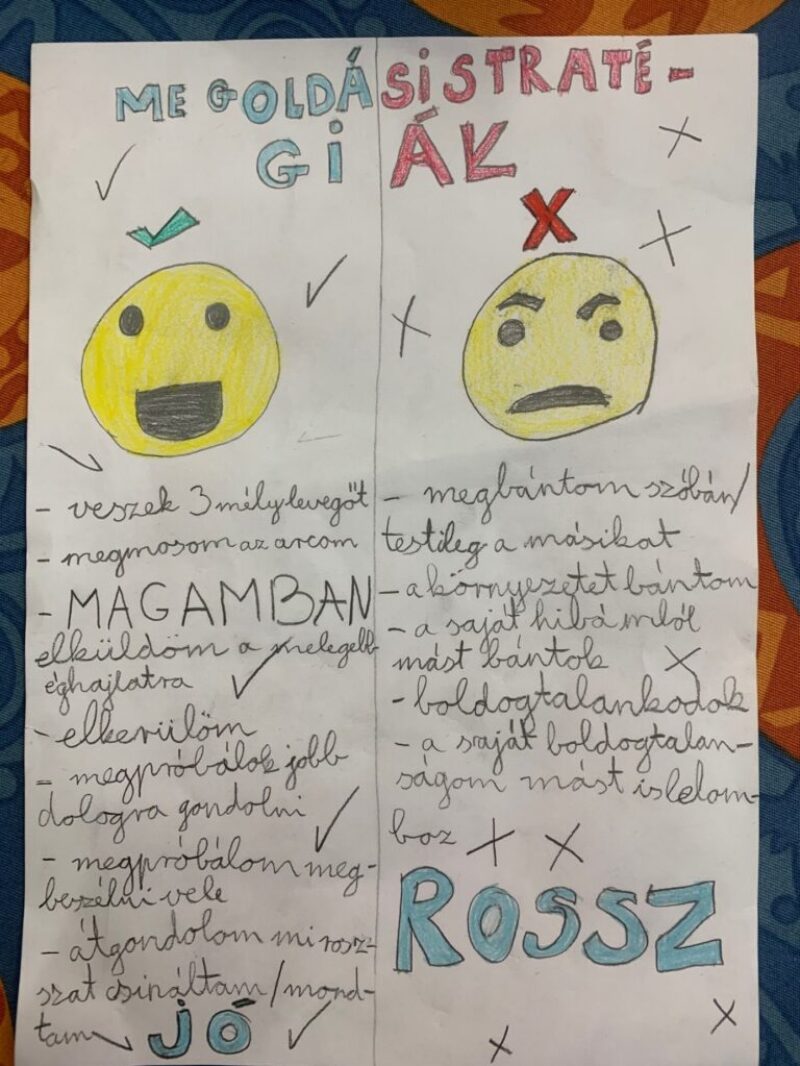 MEGOLDÁSI STRATÉ-
GIÁK
- veszek 3 mély levegőt
- megmosom az arcom
- MAGAMBAN
elküldöm a melegebb
éghajlatra
- elkerülöm
- megpróbálok jobb
dologra gondolni
- megpróbálom meg-
beszélni vele
- átgondolom mi rosz-
szat csináltam/mond-
tam
JÓ
- megbántom szóban/
testileg a másikat
- a környezetet bántom
- a saját hibámból
mást bántok
- boldogtalankodok
- a saját boldogtalan-
ságom mást is lelom-
boz
ROSSZ